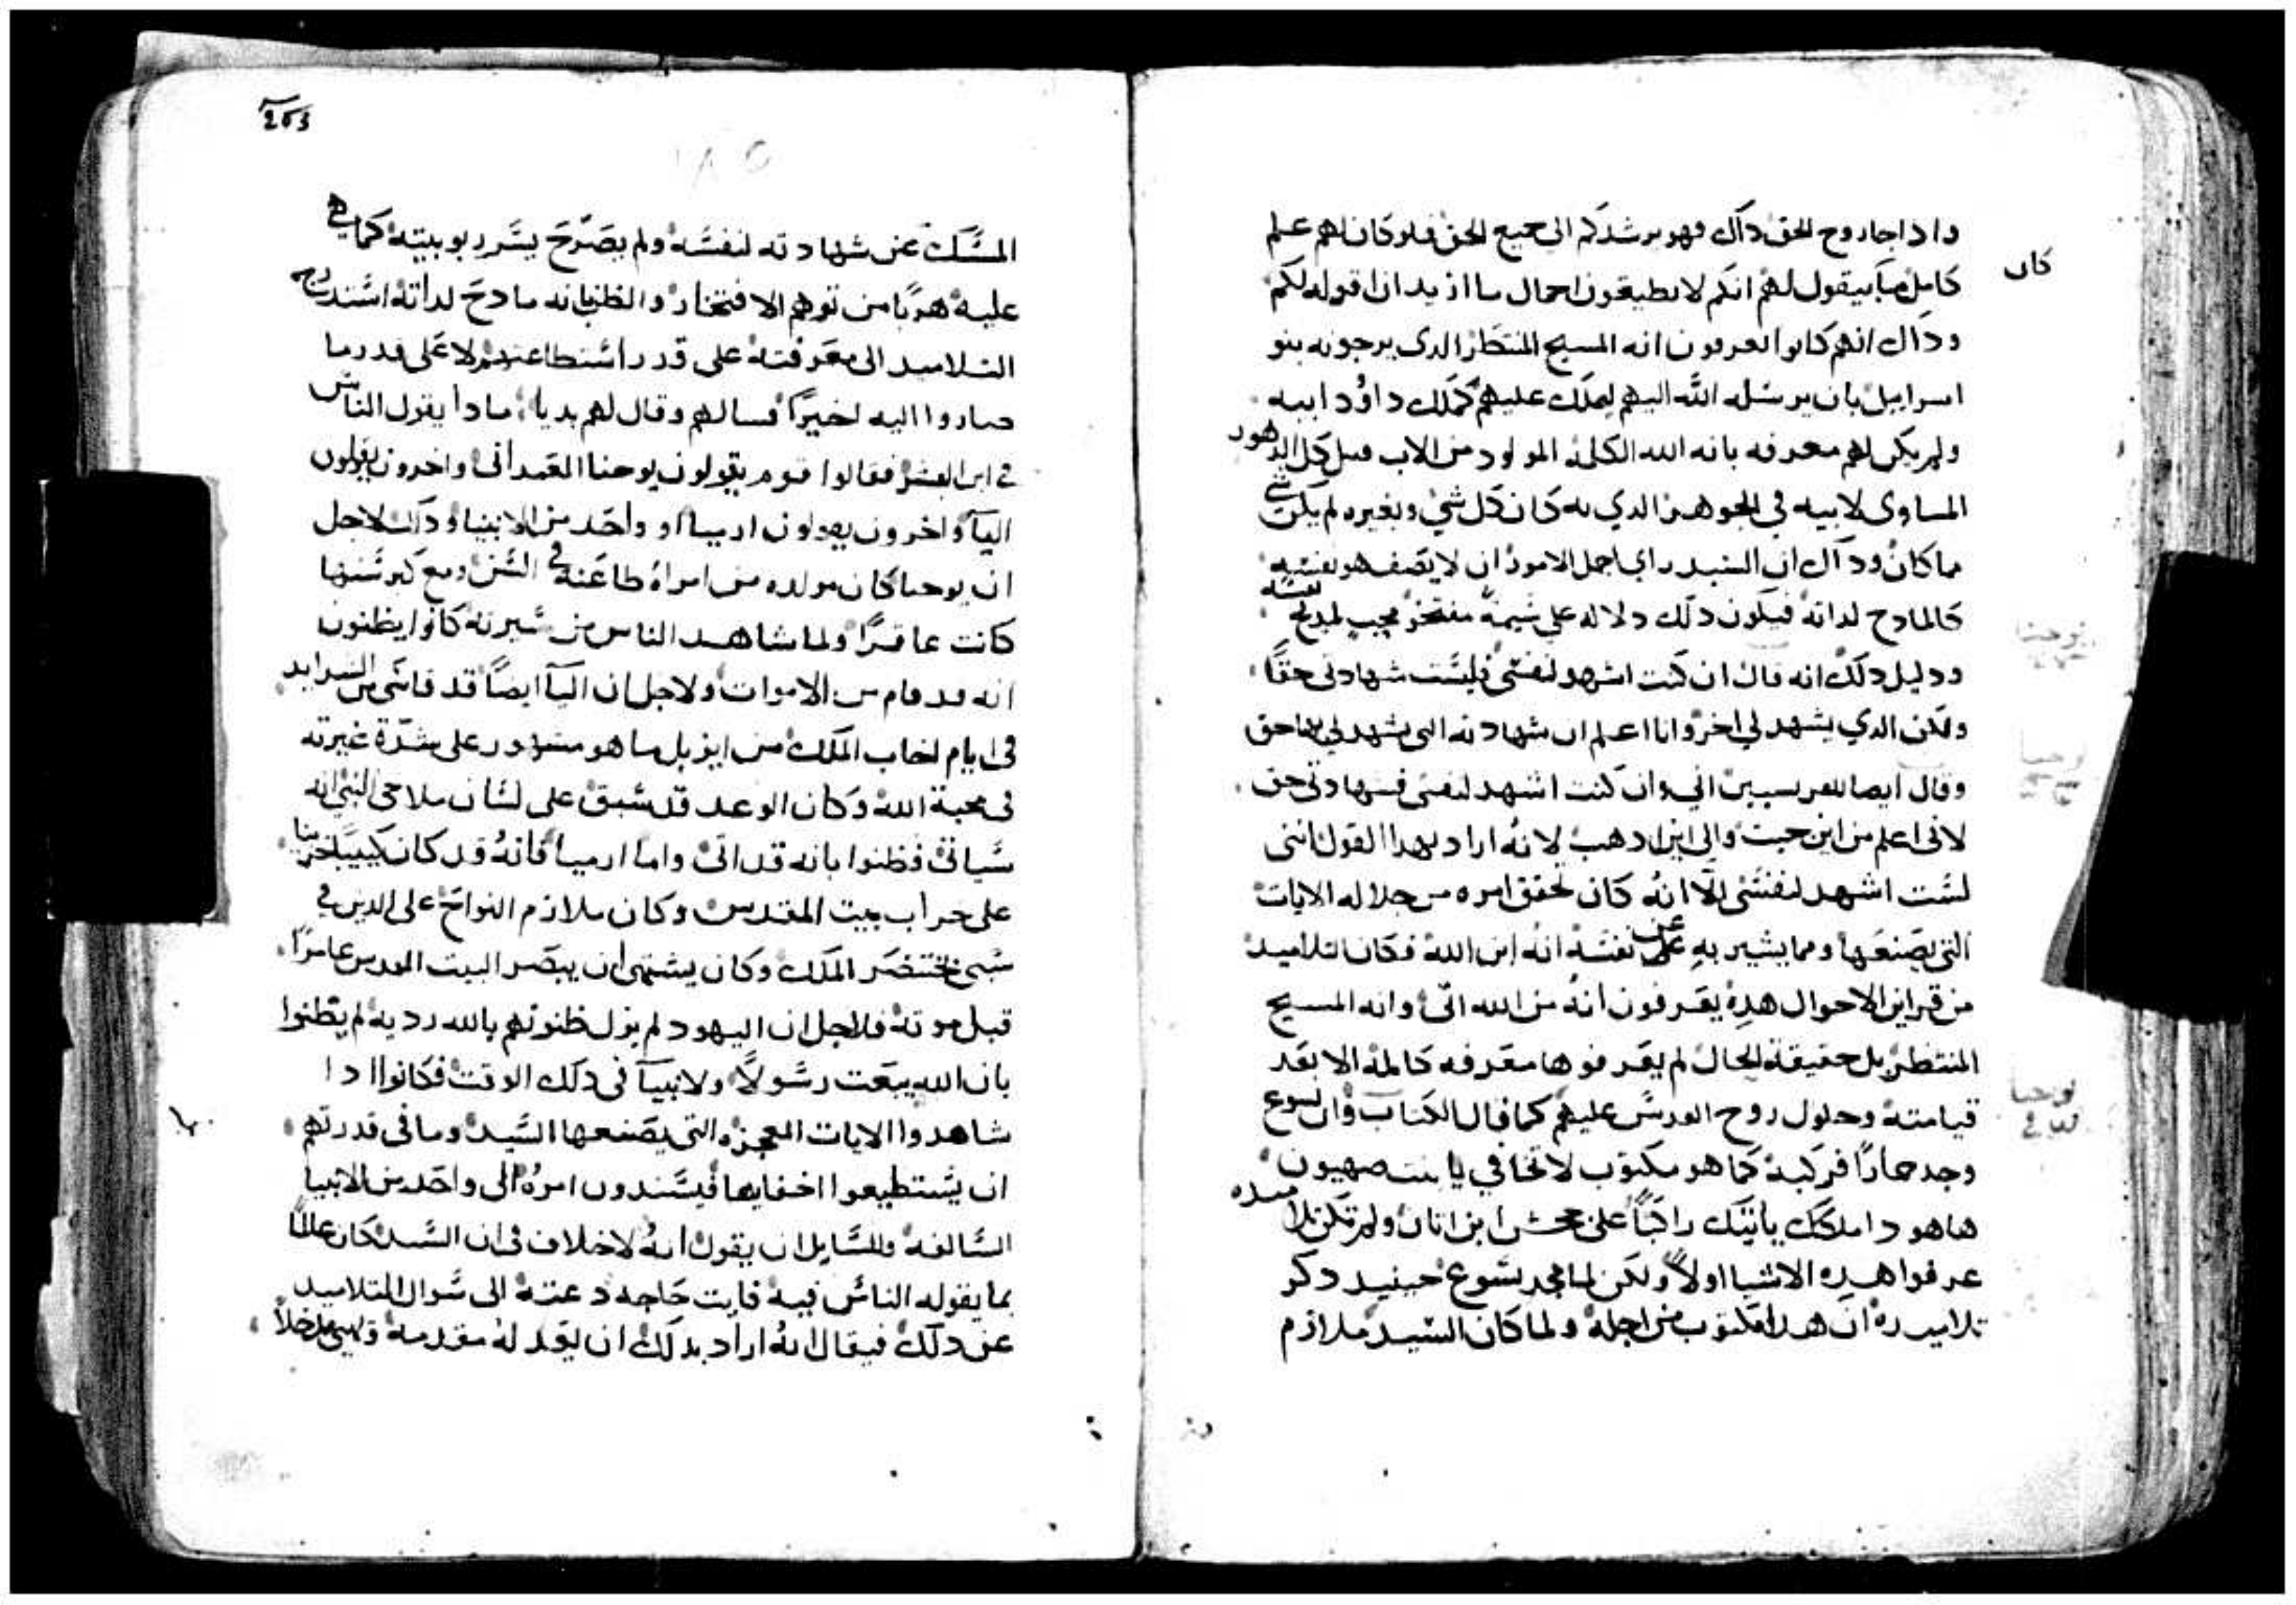 كان
واذا جا روح الحق داك فهو يرشدكم الى جميع الحق فلو كان لهم علم
كامل ما يقول لهم انكم لا تطيقون احمال ما اريد ان اقوله لكم
وداك انهم كانوا يعرفون انه المسيح المنتظر الدى يرجونه بنو
اسراييل بان يرسله الله اليهم ليملك عليهم كملك داوُد ابيه
ولم يكن لهم معرفه بانه الله الكلمة المولود من الاب قبل كل الدهور
المساوى لابيه في الجوهر الدي به كان كل شي وبغيره لم يكن شي
مما كان وداك ان السيد راي اجمل الامور ان لا يصف هو نفسه
كالمادح لداته فيكون دلك دلاله على شيمة مفتخر معجب لمدح نفسه
ودليل دلك انه قال ان كنت اشهد لنفسي فليست شهادتى حقًا
ولكن الدي يشهد لي اخر وانا اعلم ان شهادته التى يشهد لي بها حق
وقال ايضا للفريسيين اني وان كنت اشهد لنفسى فشهادتى حق
لانى اعلم من اين جيت والى اين ادهب لانه اراد بهدا القول اننى
لست اشهد لنفسى الا انه كان تحقق امره من جلاله الايات
التى يصنعها ومما يشير به عن نفسه انه ابن الله فكان التلاميد
من قراين الاحوال هده يعرفون انه من الله اتى وانه المسيح
المنتظر بل حقيقة الحال لم يعرفوها معرفه كاملة الا بعد
قيامته وحلول روح القدس عليهم كما قال الكتاب وان يسوع
وجد حمارًا فركبه كما هو مكتوب لا تخافي يا بنت صهيون
هاهودا ملكك ياتيك راكبًا على جحش ابن اتان ولم تكن تلاميده
عرفوا هده الاشيا اولاً ولكن لما مجد يسوع حينيد دكر
تلاميده ان هدا مكتوب من اجله ولما كان السيد ملازم
203
١٨٥
المسك عن شهادته لنفسه ولم يصرح بسر ربوبيته كما هي
عليه هربًا من توهم الافتخار والظن بانه مادح لداته
التلاميد الى معرفته على قدر استطاعتهم لا على قدر ما
صاروا اليه اخيرًا فسالهم وقال لهم بديا مادا يقول الناس
في ابن البشر فقالوا قوم يقولون يوحنا المعمدانى واخرون يقولون
اليا واخرون يقولون ارميا او واحد من الانبيا وداك لاجل
ان يوحنا كان مولده من امراة طاعنة في السن ومع كبر سنها
كانت عاقرًا ولما شاهد الناس من سيرته كانوا يظنون
انه قد قام من الاموات ولاجل ان اليا ايضًا قد قاسى من الشدايد
فى ايام اخاب الملك من ايزبل ما هو مشهور على شدة غيرته
فى محبة الله وكان الوعد قد سبق على لسان ملاخى النبي انه
سياتى فظنوا بانه قد اتى واما ارميا فانه قد كان كييبًا حزينا
على خراب بيت المقدس وكان ملازم النواح على الدين في
سبى بختنصر الملك وكان يشتهى ان يبصر البيت المقدس عامرًا
قبل موته فلاجل ان اليهود لم يزل ظنونهم بالله رديه لم يظنوا
بان الله يبعت رسولًا ولا نبيا فى دلك الوقت فكانوا ادا
شاهدوا الايات المعجزه التى يصنعها السيد وما فى قدرتهم
ان يستطيعوا اخفايها فيسندون امره الى واحد من الانبيا
السالفة وللسايل ان يقول انه لا خلاف فى ان السيد كان عالمًا
بما يقوله الناس فيه فايت حاجه دعته الى سوال التلاميد
عن دلك فيقال انه اراد بدلك ان يقدله مقدمه